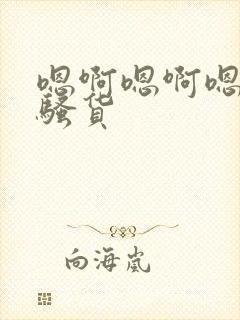 嗯啊嗯啊嗯
骚货
向海岚